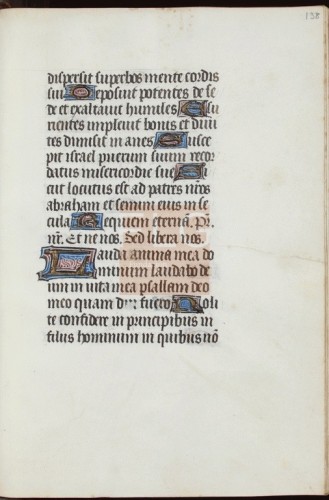 138
dispersit superbos mente cordis
sui Deposuit potentes de se
de et exaltauit humiles Esu
rientes impleuit bonis et diui
tes dimisit in anes Susce
pit israel puerum suum recor
datus misericordie sue Si
cut locutus est ad patres nr̄os
abraham et semini eius in se
cula Requiem eternā. Pr̄.
nr̄. Et ne nos. Sed libera nos.
Lauda anima mea do
minum laudabo do
um in vita mea psallam deo
meo quam diu fuero Noli
te confidere in principibus in
filius hominum in quibus nō